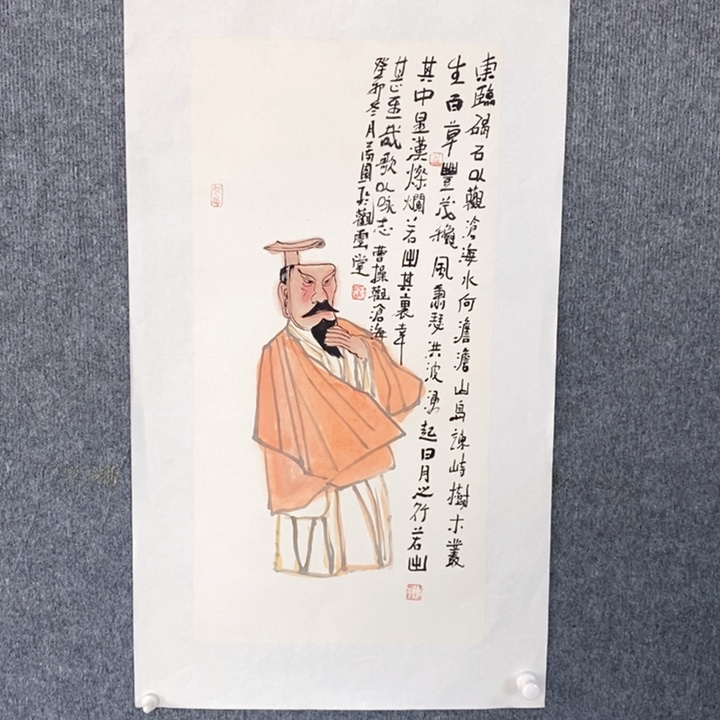 東臨碣石以觀滄海水何澹澹山島竦峙樹木叢
生百草豐茂秋風蕭瑟洪波湧起日月之行若出
其中星漢燦爛若出其裏幸
甚至哉歌以咏志 曹操觀滄海
癸卯冬月 於觀雲堂